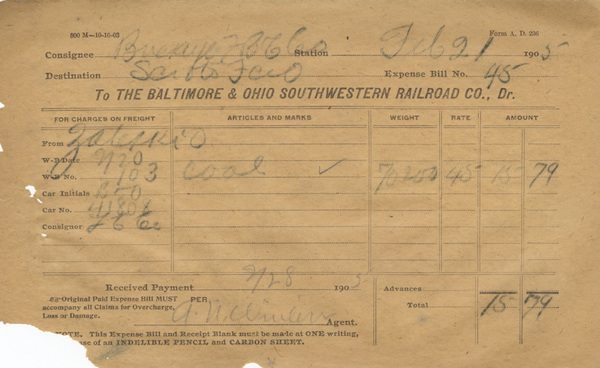 500 M—10-16-03 Form A. D. 256
Consignee Station Feb 21 1905
Destination Scioto Expense Bill No. 45
To THE BALTIMORE & OHIO SOUTHWESTERN RAILROAD CO., Dr.
FOR CHARGES ON FREIGHT ARTICLES AND MARKS WEIGHT RATE AMOUNT
From Zaleski O
W-B Date 2/20
W-B No. 103 coal ✓ 70250 45 15 79
Car Initials B&O
Car No.
Consignor
Received Payment 2/28 1905 Advances
Original Paid Expense Bill MUST PER Total 15 79
accompany all Claims for Overcharge,
Loss or Damage. Agent.
NOTE. This Expense Bill and Receipt Blank must be made at ONE writing,
use of an INDELIBLE PENCIL and CARBON SHEET.